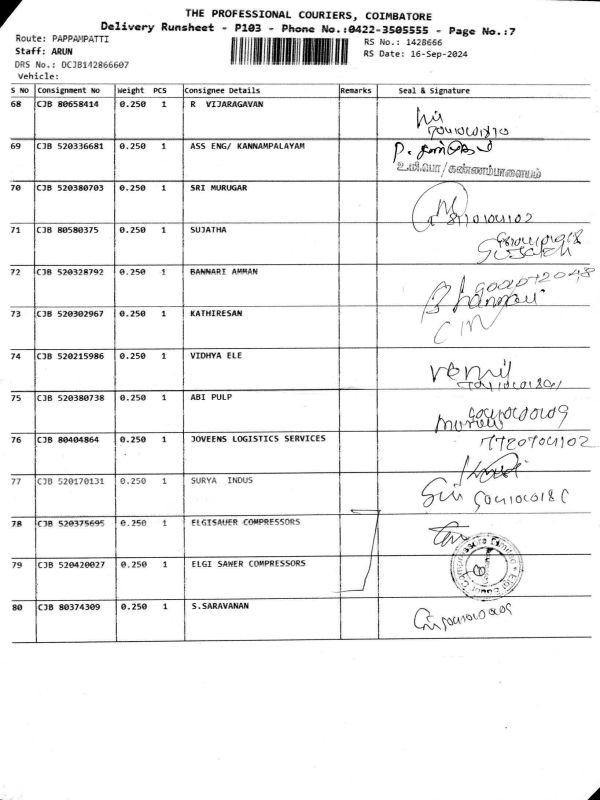 THE PROFESSIONAL COURIERS, COIMBATORE
Delivery Runsheet - P103 - Phone No.:0422-3505555 - Page No.:7
Route: PAPPAMPATTI
RS No.: 1428666
Staff: ARUN
RS Date: 16-Sep-2024
DRS No.: DCJB142866607
Vehicle:
S No Consignment No Weight PCS Consignee Details Remarks Seal & Signature
68 CJB 80658414 0.250 1 R VIJARAGAVAN
69 CJB 520336681 0.250 1 ASS ENG/ KANNAMPALAYAM
உ.மி.பொ/கண்ணம்பாளையம்
70 CJB 520380703 0.250 1 SRI MURUGAR
71 CJB 80580375 0.250 1 SUJATHA
72 CJB 520328792 0.250 1 BANNARI AMMAN
73 CJB 520302967 0.250 1 KATHIRESAN
74 CJB 520215986 0.250 1 VIDHYA ELE
75 CJB 520380738 0.250 1 ABI PULP
76 CJB 80404864 0.250 1 JOVEENS LOGISTICS SERVICES
77 CJB 520170131 0.250 1 SURYA INDUS
78 CJB 520375695 0.250 1 ELGISAUER COMPRESSORS
79 CJB 520420027 0.250 1 ELGI SAWER COMPRESSORS
80 CJB 80374309 0.250 1 S.SARAVANAN